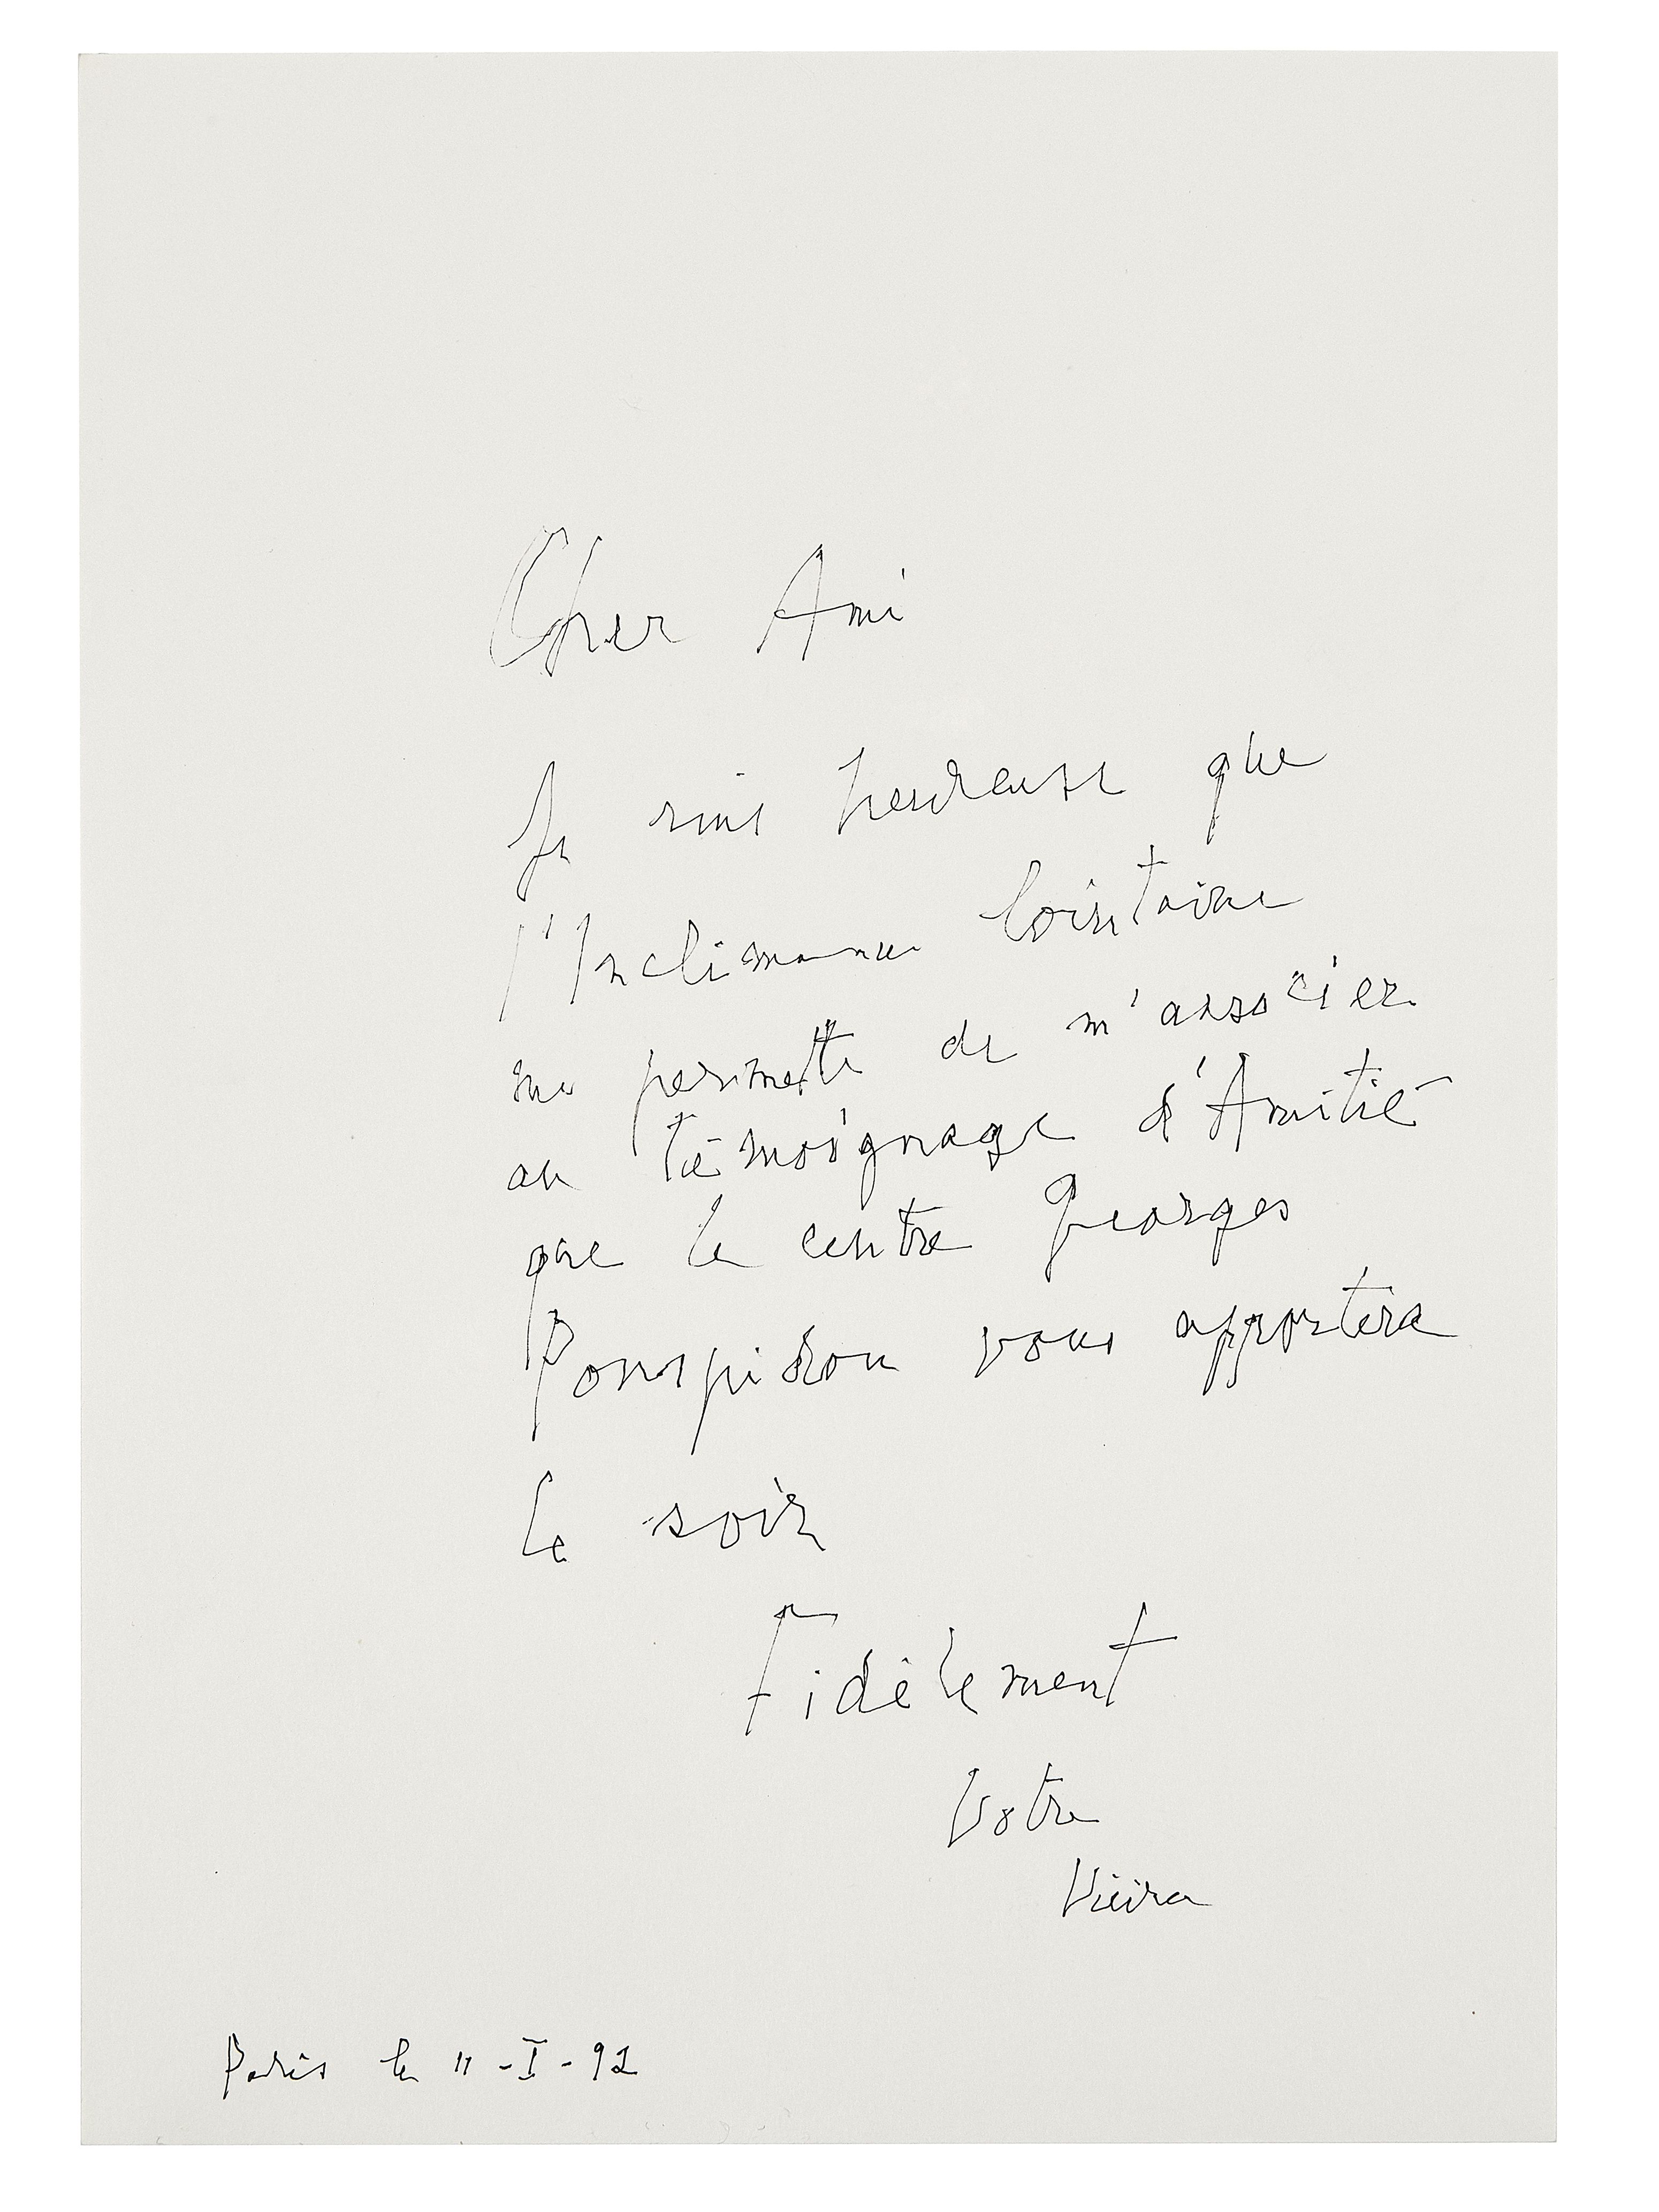 Cher Ami
Je suis heureuse que
lointaine
me permette de m'associer
au témoignage d'Amitié
que le centre Georges
Pompidou vous apportera
le soir
Fidèlement
Votre
Vieira
Paris le 11-I-92